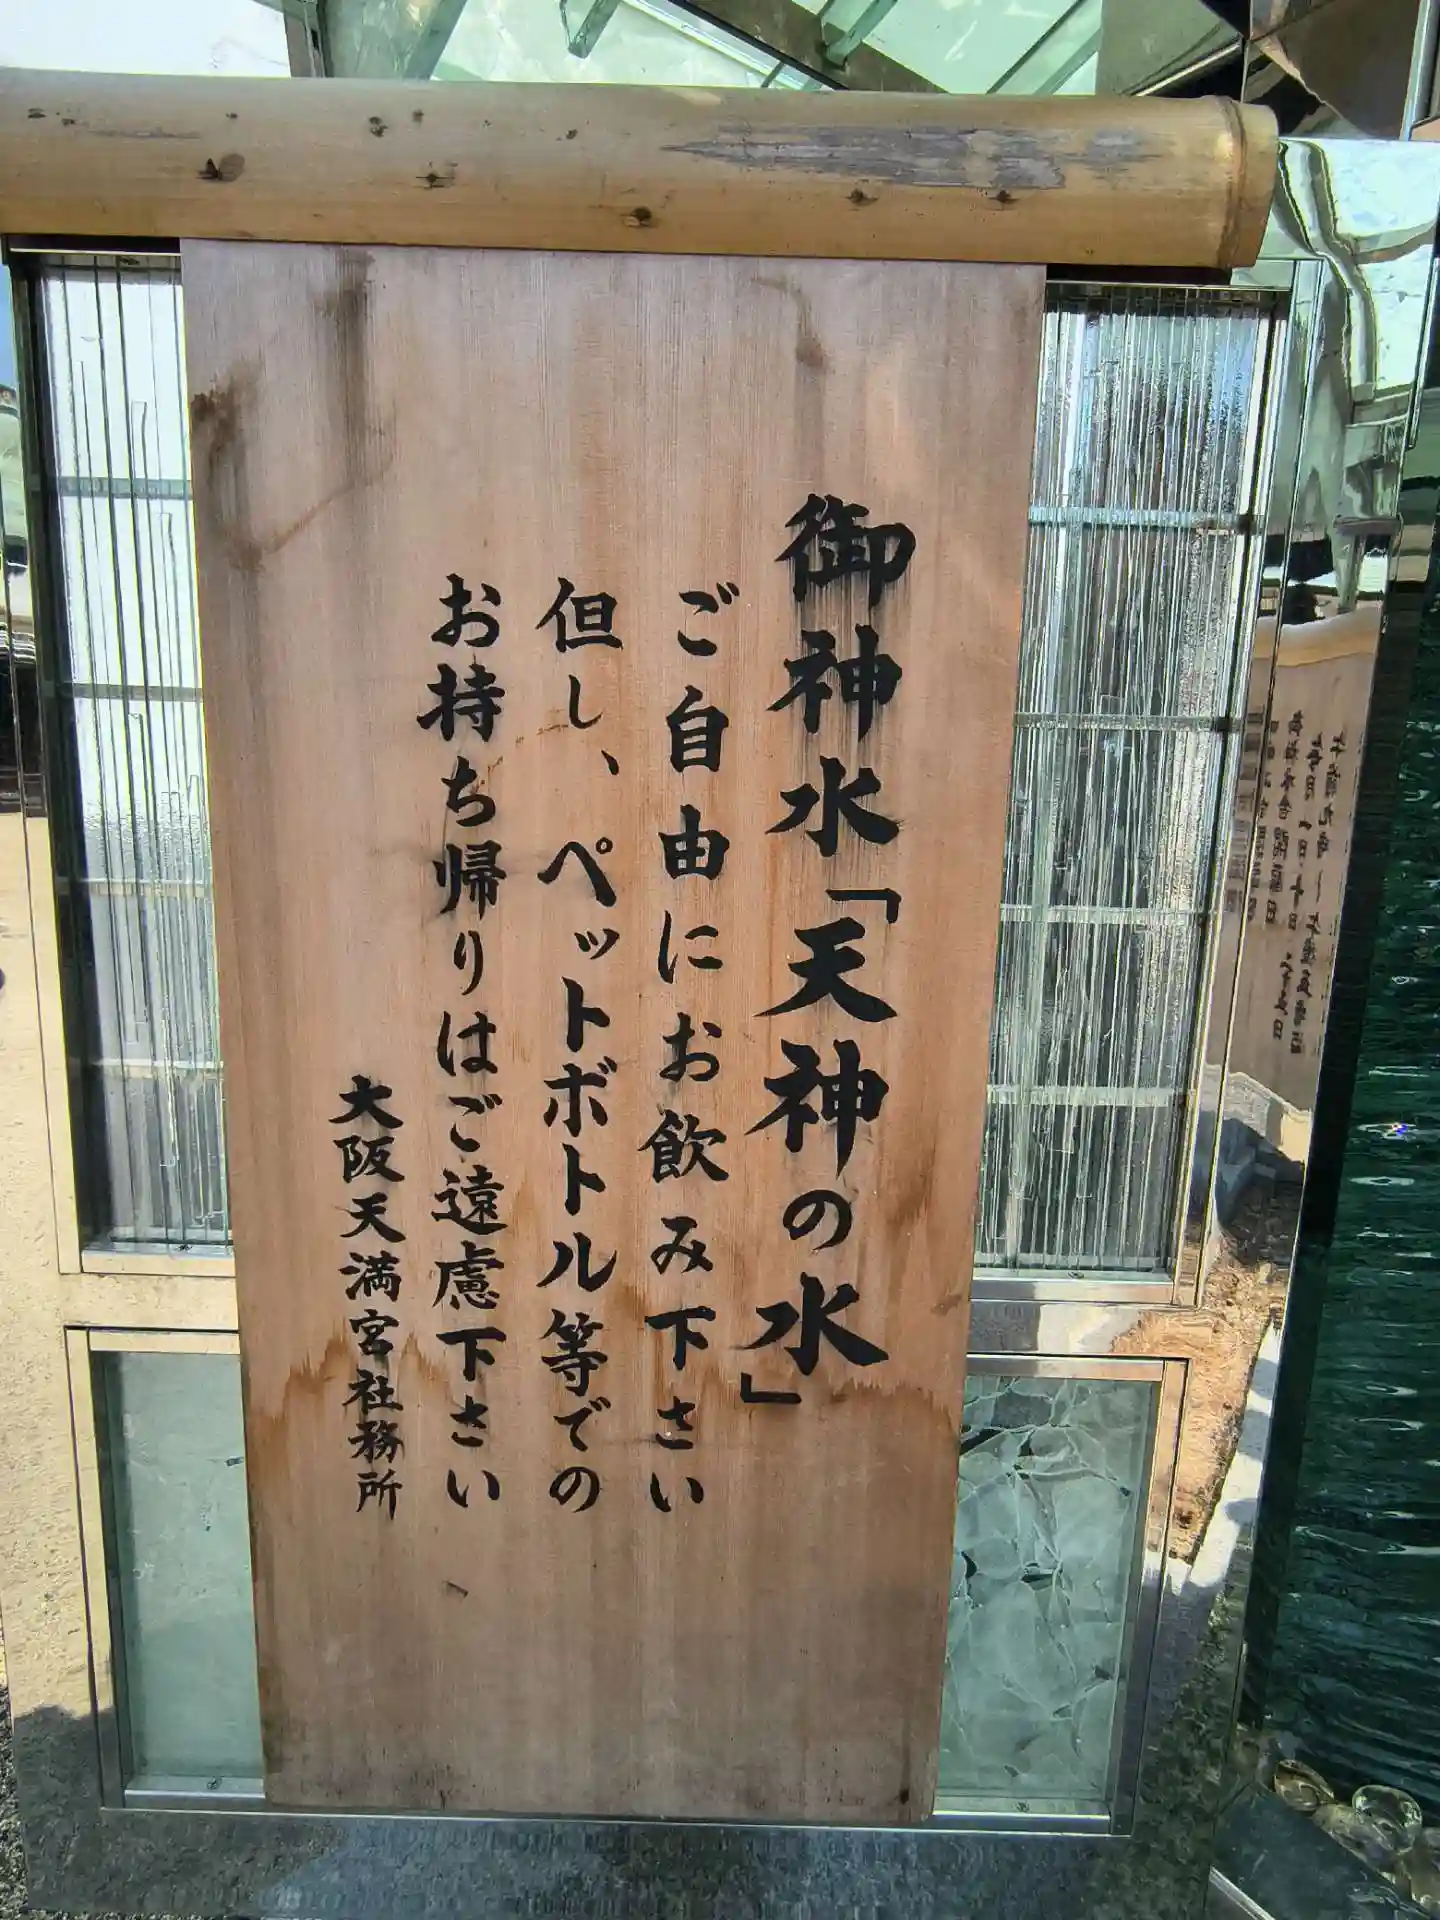 御神水「天神の水」
ご自由にお飲み下さい
但し、ペットボトル等での
お持ち帰りはご遠慮下さい
大阪天満宮社務所